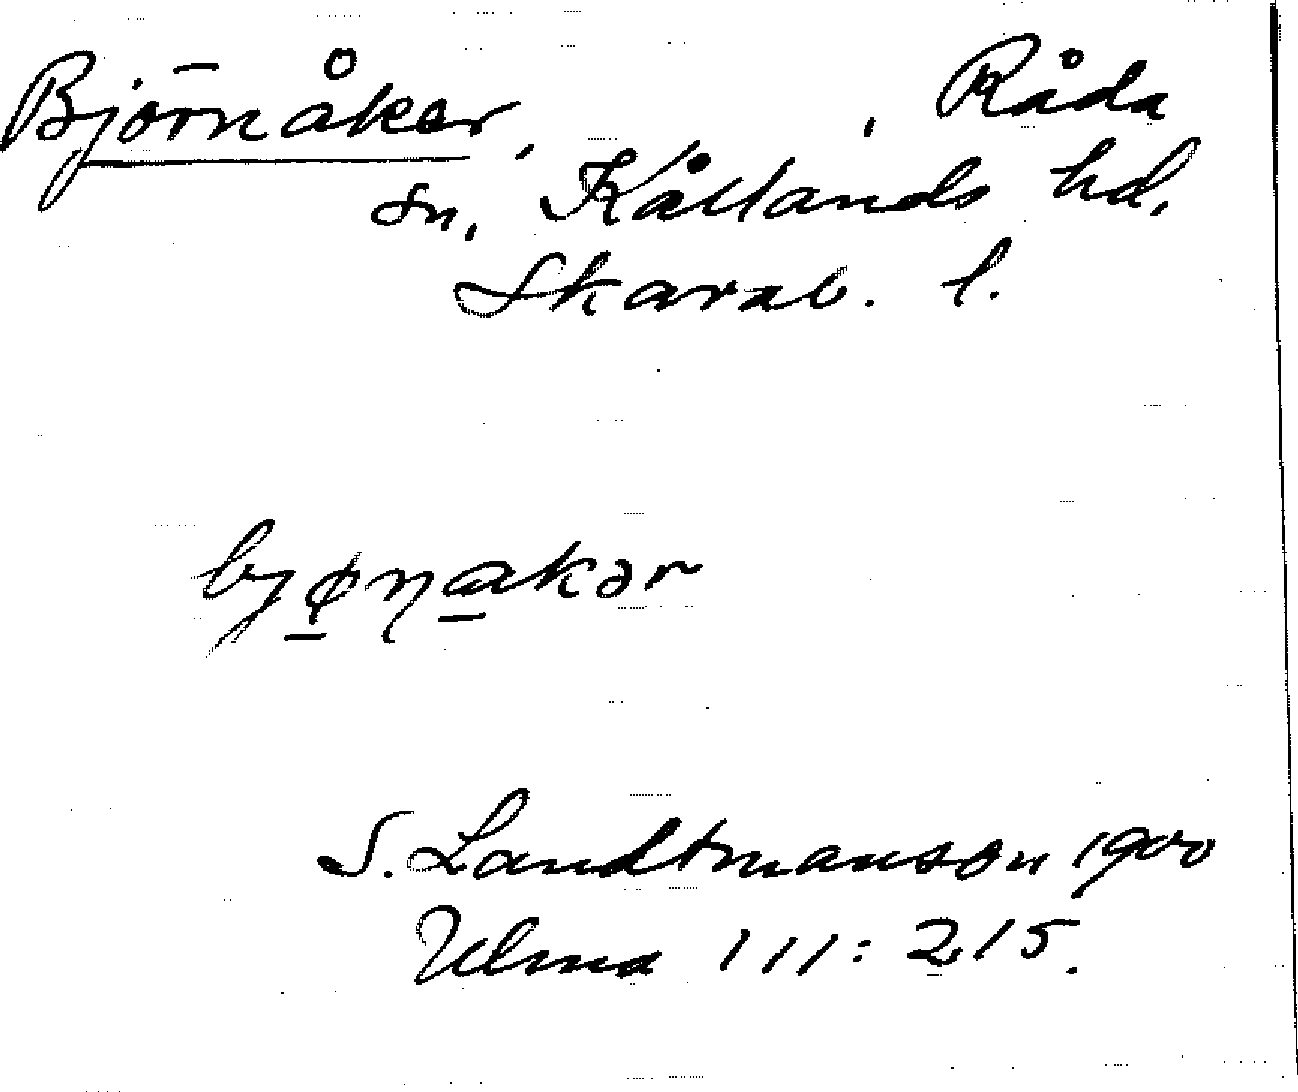 Björnåker, , Råda
sn, Kållands hd,
Skarab. l.
bjøṇakər
S. Landtmanson 1900
Ulma 111: 215.